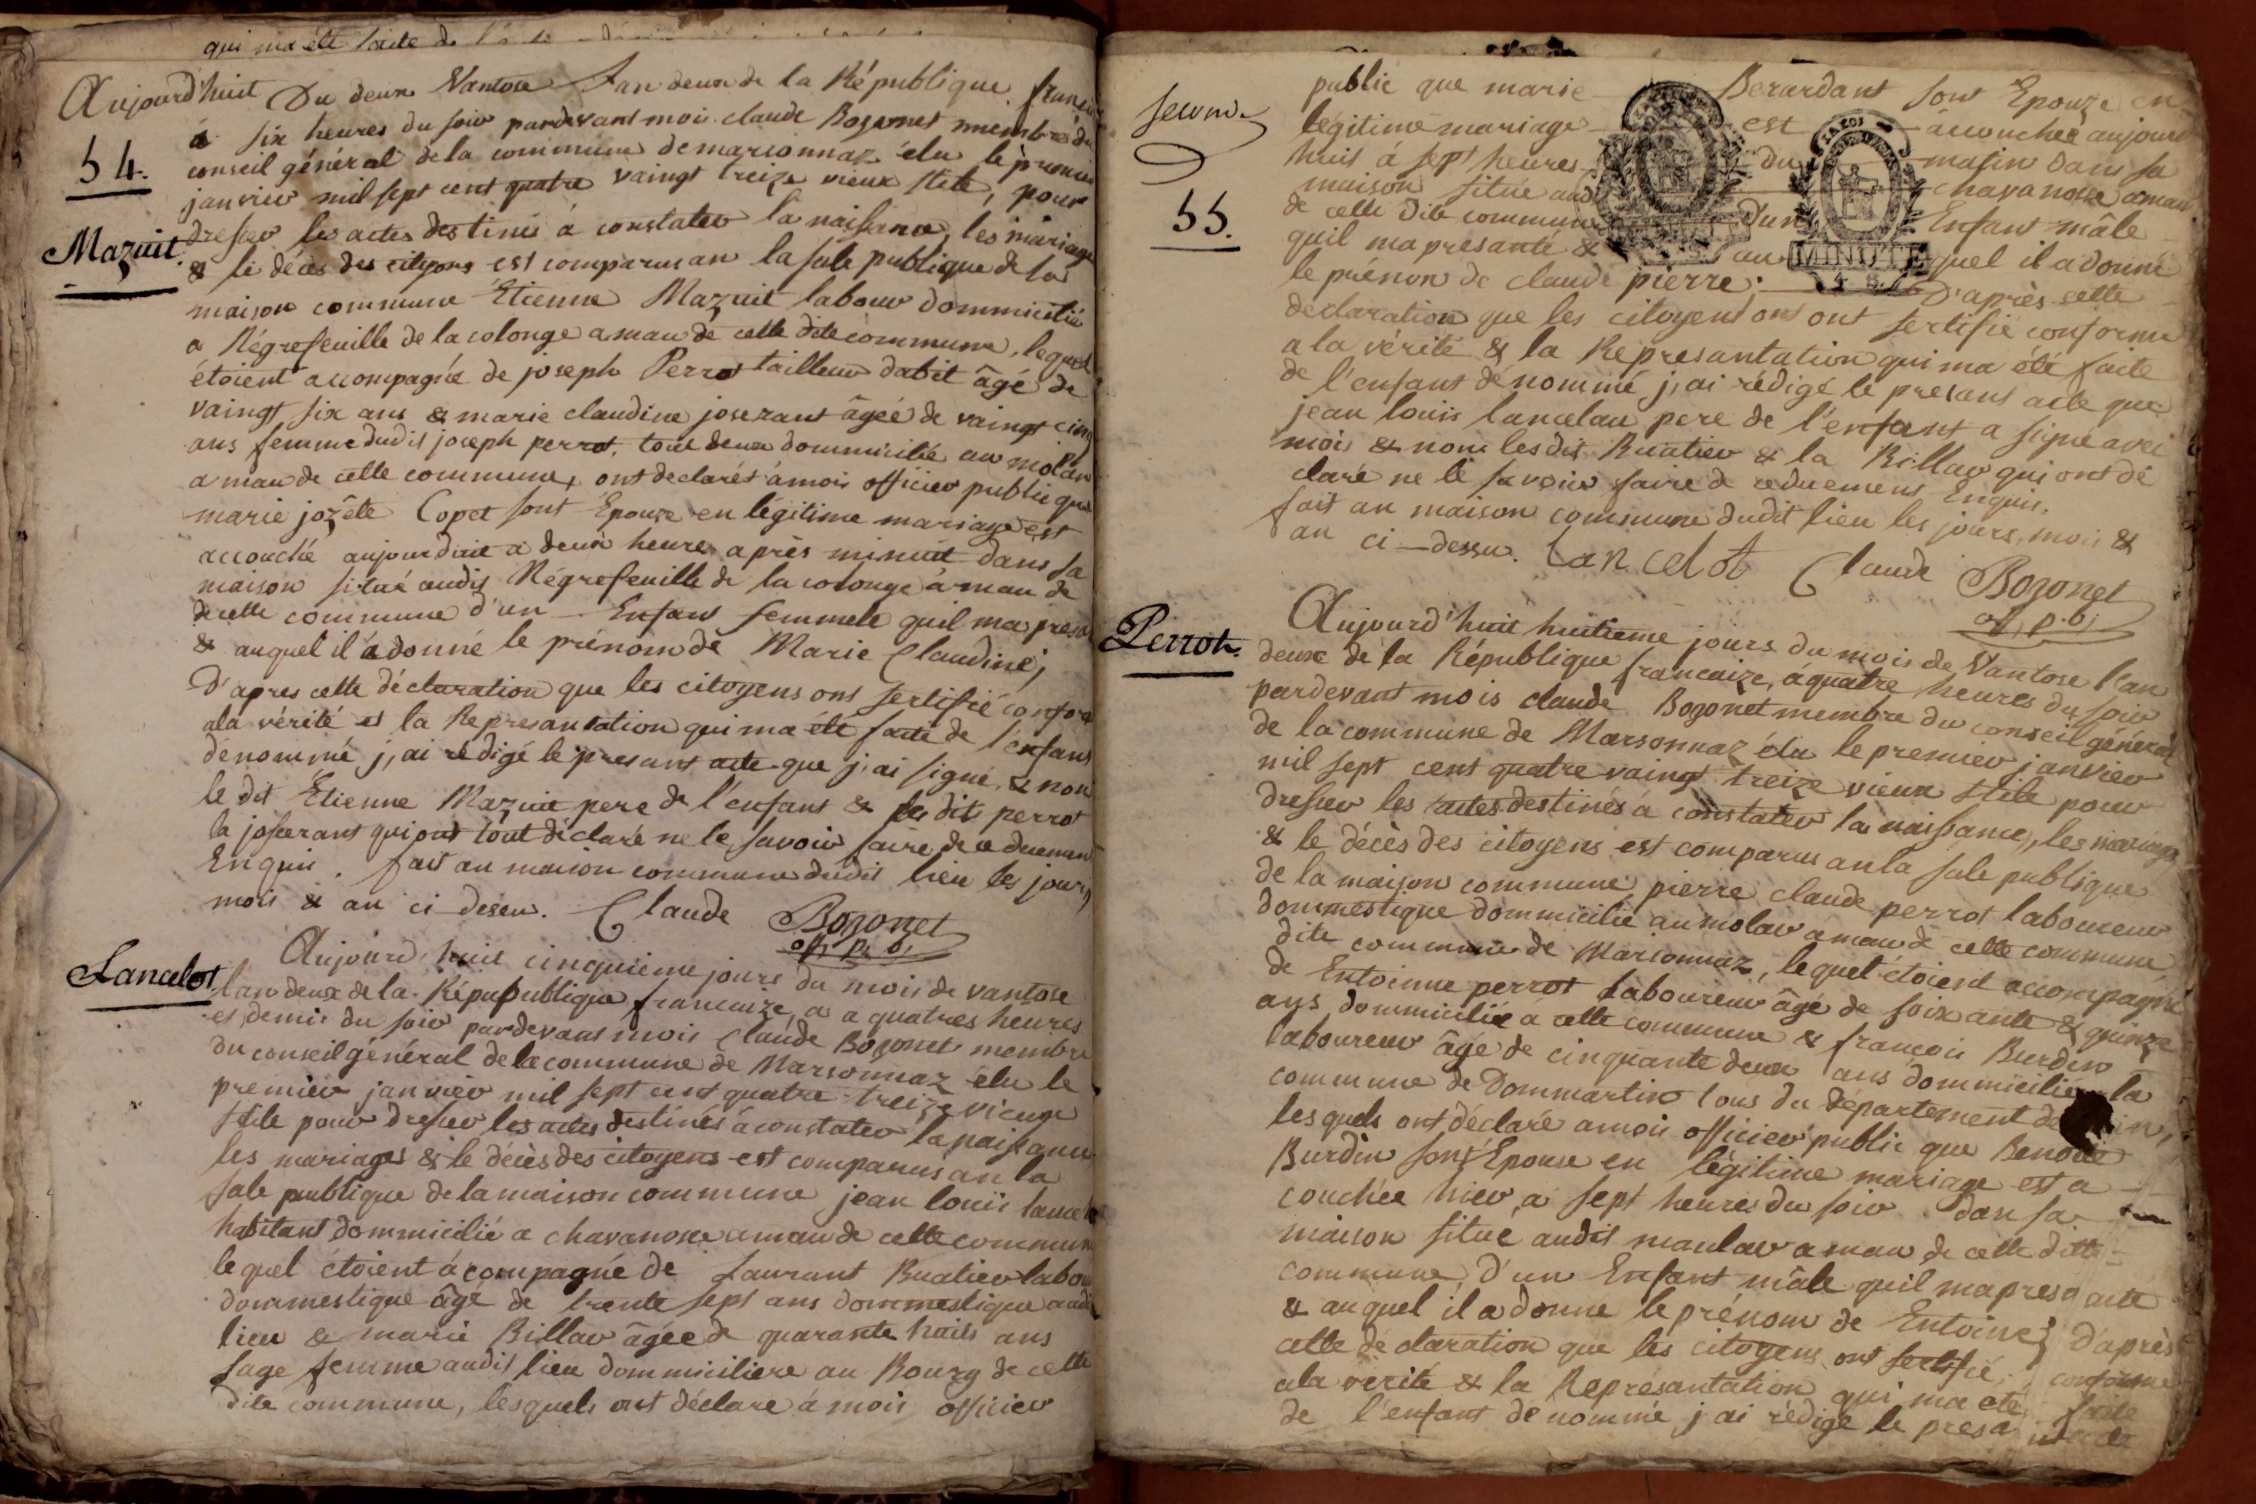 qui ma été faite de
Aujourd'huit Du deux Vantose Lan deux de la République
à six heures du soir pardevant mois claude Bozonet membre du
54.
conseil général de la commune de marsonnaz élu le premier
janvier mil sept cent quatre vaingt treize vieux stile, pour
dresser les actes destinés à constater la naissance, les mariage
Mazuit.
& le décès des citoyens est comparus an la sale publique de la
maison commune Etienne Mazuit labour dommicilié
a Négrefeuille de la colonge a mau de cette dite commune, lequel
étoient accompagné de joseph Perrot tailleur dabit âgé de
vaingt six ans & marie claudine joserant âgée de vaingt cinq
ans femme dudit joseph perrot, tout deux dommicilié au molar
a mau de cette commune, ont declarés à mois officier public que
marie jozête Copet sont Epouze en légitime mariage est
accouché aujourdhuit a deux heures après minuit dans sa
maison situé audit Négrefeuille de la colonge à mau de
de cette commune d'un Enfant femmele quil ma presa
& auquel il a donné le prénom de Marie Claudine;
D'apres cette déclaration que les citoyens ont sertifié confor
ala vérité et la Represantation qui ma été faite de l'enfant
denommé j,ai rédigé le presant acte que j,ai signé, & non
le dit Etienne Mazuit pere de l'enfant & les dits perrot
la joserant qui ont tout déclaré ne le savoir faire de ce duemen
Enquis. fait an maison commune dudit lieu les jours,
mois & an ci desu. Claude Bozonet
off. p. b.
Aujourd,huit cinquieme jours du mois de vantose
Lancelot
lan deux de la Répupublique francaize, a a quatres heures
et demis du soir pardevant mois Claude Bozonet membre
du conseil général de la commune de Marsonnaz élu le
premier janvier mil sept cent quatre treize vieux
stile pour dresser les actes destinés à constater la naissance
les mariages & le décès des citoyens est comparus an la
sale publique de la maison commune jean louis lancel
habitant dommicilié a chavanosse a mau de cette commune
lequel étoient acompagné de Laurant Buatier labou
dommestique âgé de trente sept ans dommestique audi
lieu & marie Billar âgée de quarante huits ans
sage femme audit lieu dommiciliere au Bourg de cette
dite commune, lesquels ont déclaré à mois officier
public que marie Berardant sont Epouze en
second
légitime mariage est accouchée aujourd
huit à sept heures du matin dans sa
maison situé audi chavanosse a mau
55.
de cette dite commune d'un Enfant mâle
quil ma presanté & au quel il a donné
MINUTE
le prénon de claude pierre; D'après cette
declaration que les citoyens ont ont sertifié conforme
a la vérité & la Represantation qui ma été faite
de l'enfant dénommé j,ai rédigé le presant acte que
jean louis lancelau pere de l'enfant a signé avec
mois & non les dit Buatier & la Billar qui ont dé
claré ne le savoir faire de ce duement Enquis.
fait an maison commune dudit lieu les jours, mois &
an ci-dessu. Lancelot Claude Bozonet
off. p. b.
Aujourd'huit huitieme jours du mois de Vantose l'an
Perrot.
deux de la République francaize, à quatre heures du soir
pardevant mois claude Bozonet membre du conseil général
de la commune de Marsonnaz élu le premier janvier
mil sept cent quatre vaingt treize vieux stile pour
dresser les actes destinés à constater la naissance, les mariage
& le décès des citoyens est comparus an la sale publique
de la maison commune pierre claude perrot laboureur
dommestique dommicilié au molar a mau de cette commune
dite commune de Marsonnaz, lequel étoient accompagné
de Entoinne perrot laboureur âgé de soixante & quinze
ans dommicilié a cette commune & francois Burdin
laboureur âgé de cinquante deux ans dommicilier la
commune de Dommartin tous du departement de
lesquels ont déclaré a mois officier public que Benoite
Burdin sont Epouse en légitime mariage est a
couchée hier, a sept heures du soir dan sa
maison situé audit maular a mau de cette ditte
commune, d'un Enfant mâle quil ma presa anté
& auquel il a donne le prénom de Entoine; D'après
cette déclaration que les citoyens ont sertifié conforme
ala verité & la Représantation qui ma eté faite
de l'enfant dénommé j ai rédigé le presa nt acte